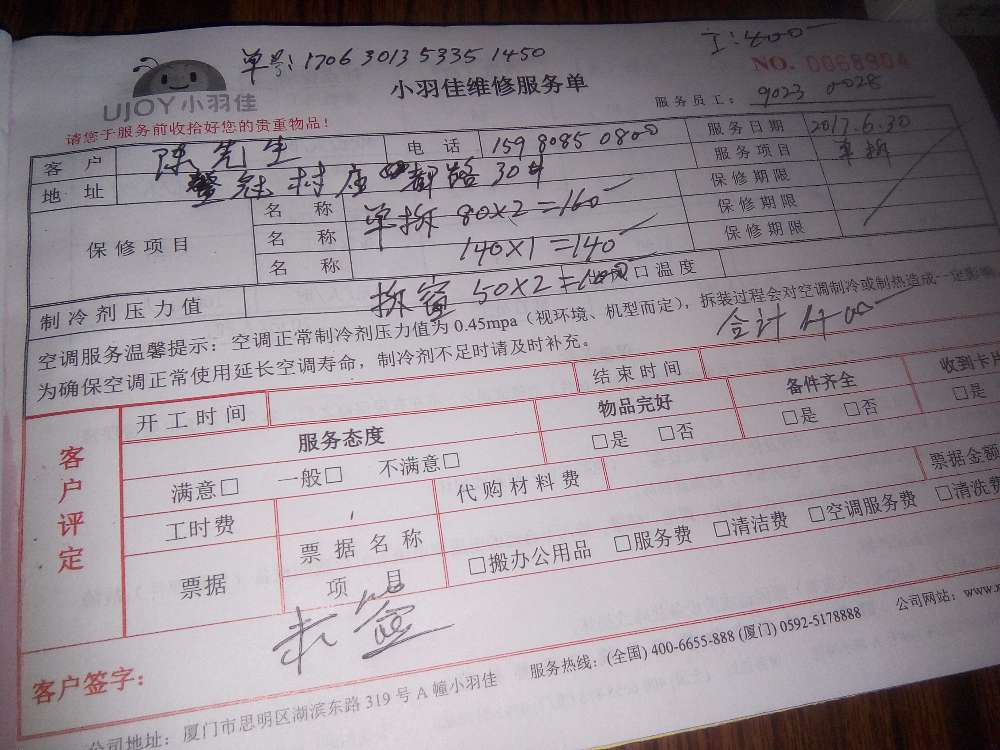 单号:1706 3013 5335 1450
工:400
UJOY小羽佳
小羽佳维修服务单
NO. 0068904
请您于服务前收拾好您的贵重物品!
服务员工: 9023 0028
客户 陈先生 电话 159 8085 0800 服务日期 2017.6.30
地址 冠村 路30 服务项目 单拆
保修项目 名称 单拆 80×2=160 保修期限
名称 140×1=140 保修期限
名称 保修期限
制冷剂压力值 拆窗 50×2=100 口温度
空调服务温馨提示:空调正常制冷剂压力值为0.45mpa(视环境、机型而定),拆装过程会对空调制冷或制热造成一定影响
为确保空调正常使用延长空调寿命,制冷剂不足时请及时补充。 合计 400
客户评定 开工时间 结束时间
服务态度 物品完好 备件齐全 收到卡片
满意□ 一般□ 不满意□ □是 □否 □是 □否 □是
工时费 代购材料费 票据金额
票据 票据名称 □搬办公用品 □服务费 □清洁费 □空调服务费 □清洗费
项目
客户签字:
公司地址:厦门市思明区湖滨东路319号A幢小羽佳 服务热线:(全国) 400-6655-888 (厦门) 0592-5178888 公司网站:www.x